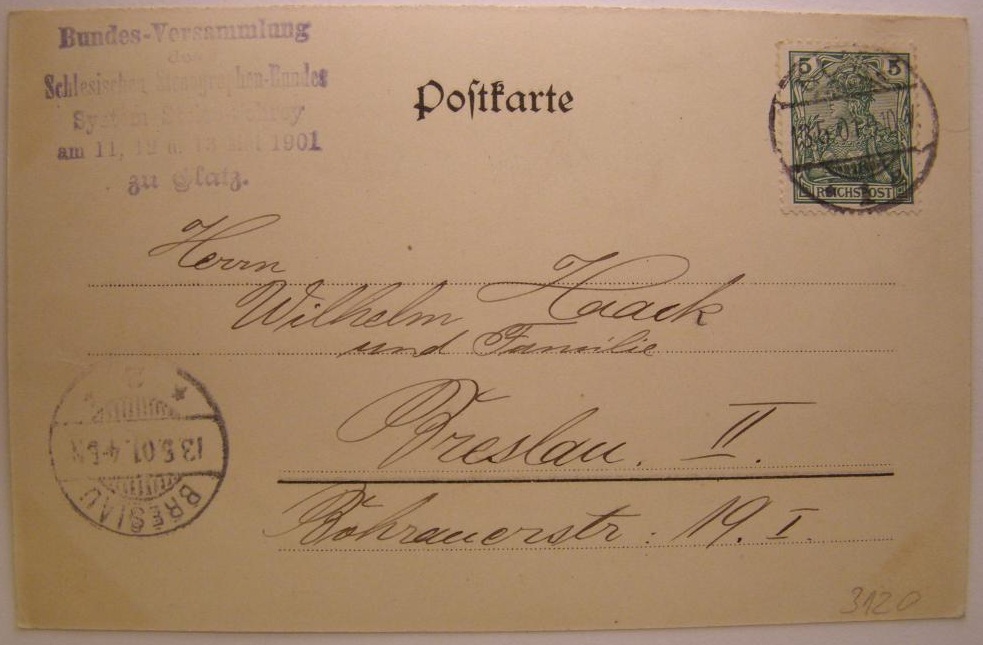 Bundes-Versammlung
des
Schlesischen Stenographen-Bundes
System
am 11, 12 u. 13 Mai 1901
zu Glatz.
Postkarte
5 5
REICHSPOST
13.5.01
Herrn
Wilhelm Haack
und Familie
Breslau. II.
Röhrauerstr: 19. I.
2
13.5.01.4-5N
BRESLAU
3120